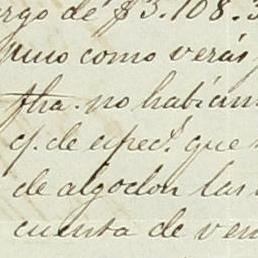 rgo de $3.108.3
como verás
fha. no habian
de que
de algodon las
cuenta de ven